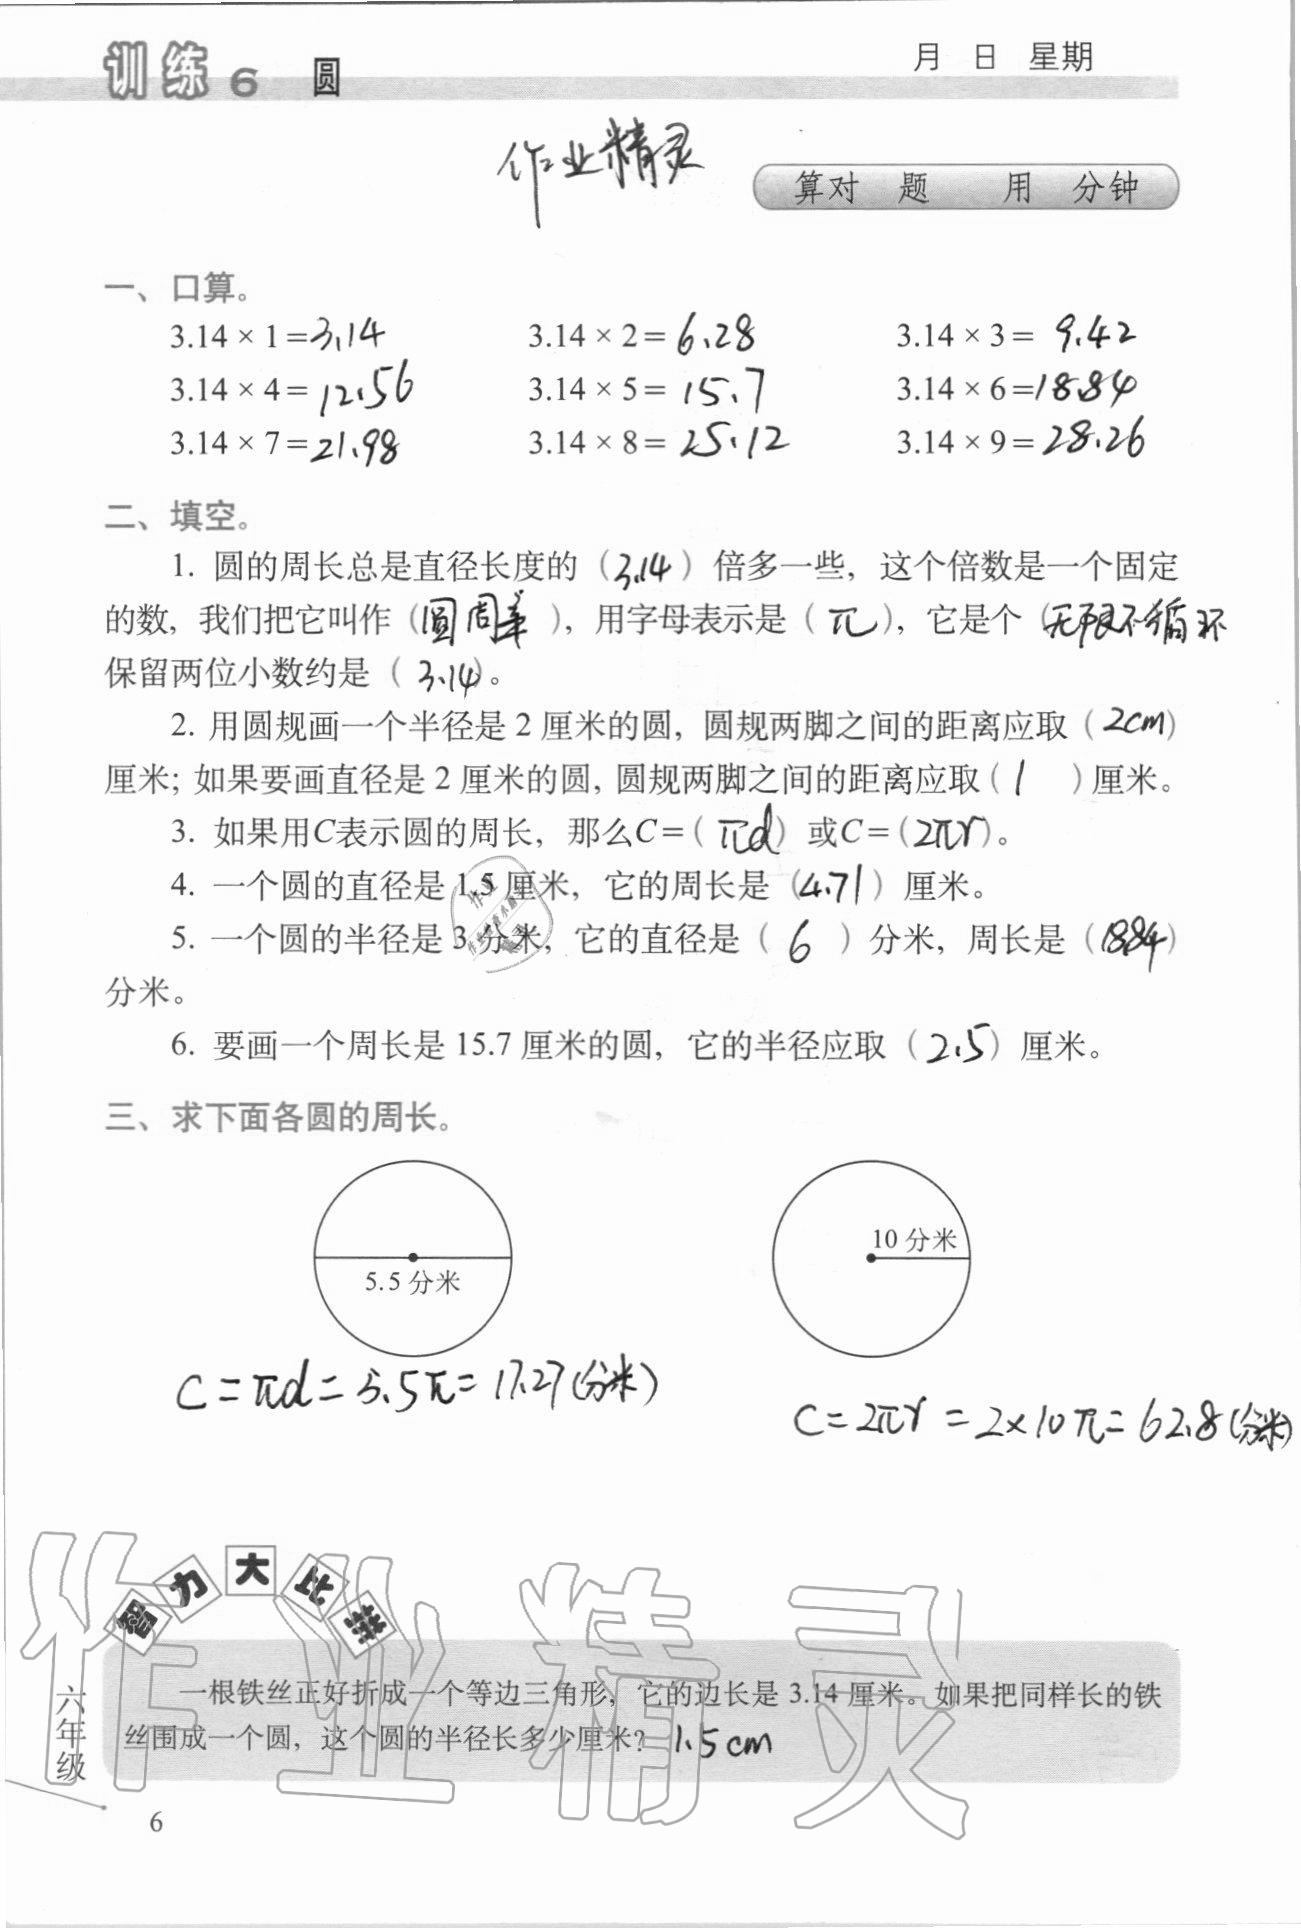 训练6 圆
月 日 星期
作业精灵
算对 题 用 分钟
一、口算。
3.14 × 1 = 3.14 3.14 × 2 = 6.28 3.14 × 3 = 9.42
3.14 × 4 = 12.56 3.14 × 5 = 15.7 3.14 × 6 = 18.84
3.14 × 7 = 21.98 3.14 × 8 = 25.12 3.14 × 9 = 28.26
二、填空。
1. 圆的周长总是直径长度的（3.14）倍多一些，这个倍数是一个固定
的数，我们把它叫作（圆周率），用字母表示是（π），它是个（无限不循环
保留两位小数约是（3.14）。
2. 用圆规画一个半径是 2 厘米的圆，圆规两脚之间的距离应取（2cm）
厘米；如果要画直径是 2 厘米的圆，圆规两脚之间的距离应取（1 ）厘米。
3. 如果用C表示圆的周长，那么C＝（πd）或C＝（2πr）。
4. 一个圆的直径是 1.5 厘米，它的周长是（4.71）厘米。
5. 一个圆的半径是 3 分米，它的直径是（6）分米，周长是（18.84）
分米。
6. 要画一个周长是 15.7 厘米的圆，它的半径应取（2.5）厘米。
三、求下面各圆的周长。
10 分米
5.5 分米
C=πd=5.5π=17.27(分米)
C=2πr=2×10π=62.8(分米)
智力大比拼
作业精灵
一根铁丝正好折成一个等边三角形，它的边长是 3.14 厘米。如果把同样长的铁
丝围成一个圆，这个圆的半径长多少厘米？ 1.5cm
六年级
6